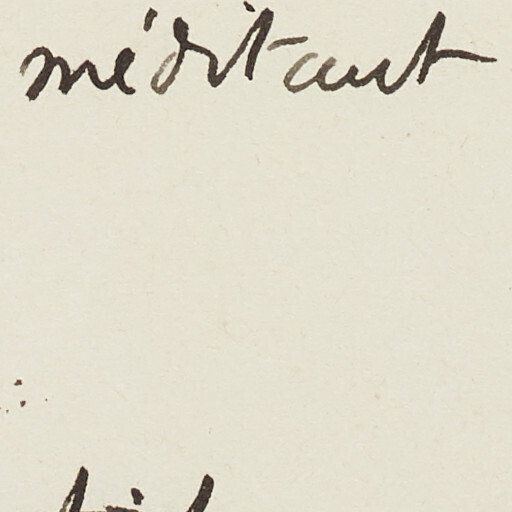 méditant